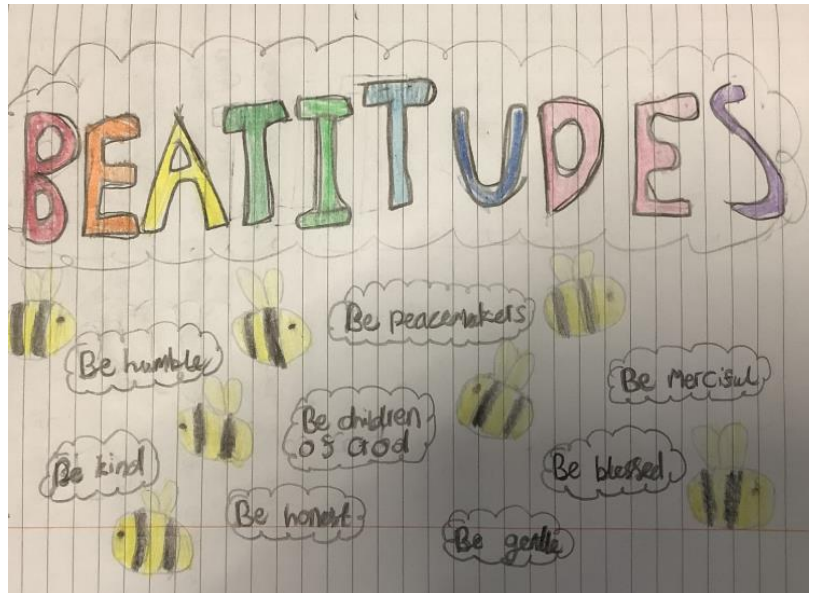 BEATITUDES
Be peacemakers
Be humble
Be Merciful
Be children
of God
Be kind
Be blessed
Be honest
Be gentle